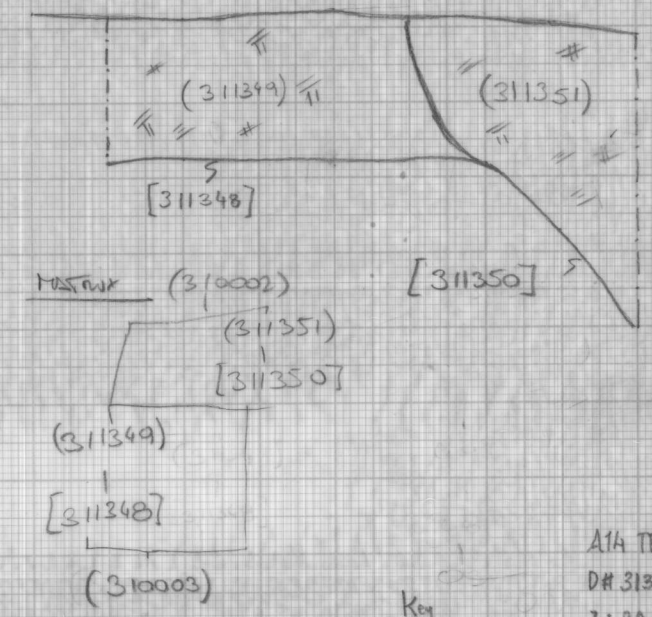 (311349)
(311351)
[311348]
[311350]
(310002)
(311351)
[311350]
(311349)
[311348]
(310003)
Key
A14
D# 313